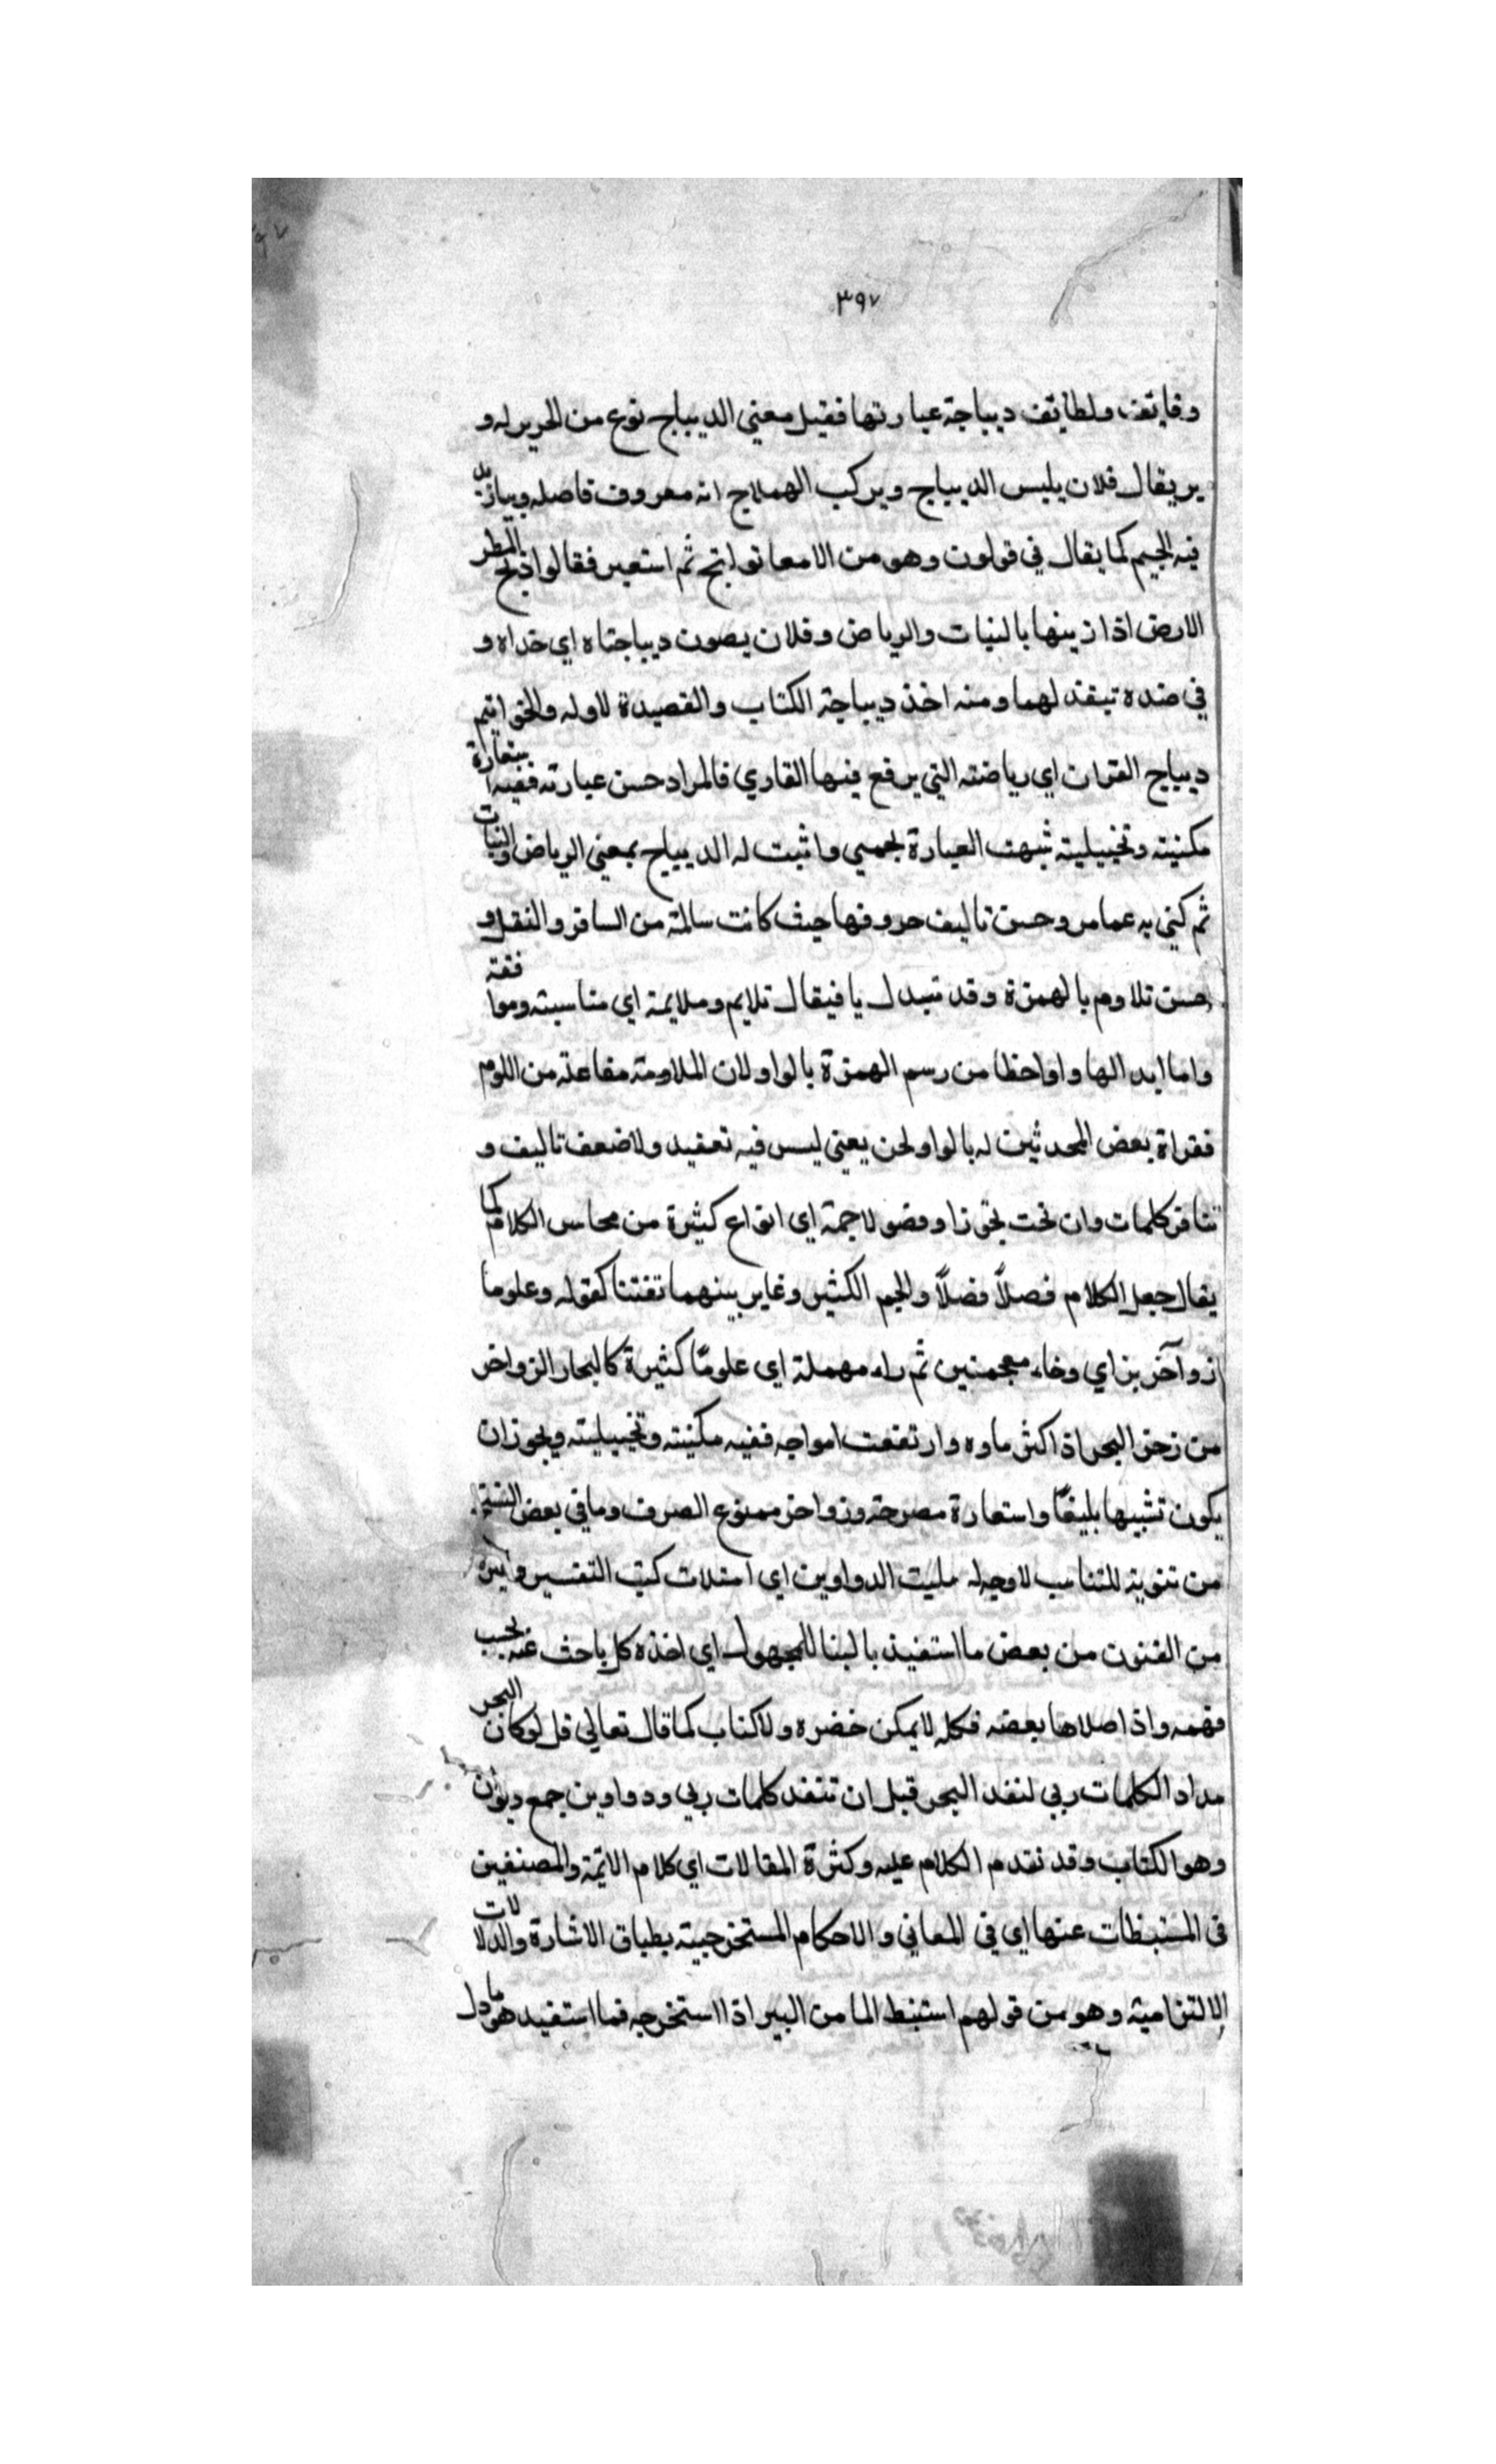 ٣٩٧
وفايقف ولطايقف ديباجة عبارتها فقيل معنى الديباج نوع من الحرير له و
ير يقال فلان يلبس الديباج ويركب الهملاج انه معروف فاصله
فيه الجيم كما يقال في قولون وهو من الامعا قولنج ثم استعير فقالوا دبج المطر
الارض اذا زينها بالنبات والرياض وفلان يصون ديباجتاه اي خداه و
في ضده تبقذ لهما ومنه اخذ ديباجة الكتاب والقصيدة لاوله والخواتيم
ديباج القران اي رياضته التي يرفع فيها القاري فالمراد حسن عبارته ففيه استعارة
مكنية وتخييلية شبهت العبارة بخمسي واثبت له الديباج بمعنى الرياض والنبات
ثم كني به عمامر وحسن تاليف حروفها حيث كانت سالمة من السافر والنقل و
حسن تلاوم بالهمزة وقد تبدل يا فيقال تلايم وملايمة اي مناسبته وموافقة
واما ابدالها واواخطا من رسم الهمزة بالواو لان الملاومة مفاعلة من اللوم
فقراة بعض المحدثين له بالواو لحن يعني ليس فيه تعقيد ولا ضعف تاليف و
تنافر كلمات وان نحت بخوزا وفصولا جمة اي انواع كثيرة من محاسن الكلام كما
يقال جعل الكلام فصلاً فصلاً والجم الكثير وغاير بينهما تفننا كقوله وعلوما
زواخر بزاي وخاء معجمتين ثم راء مهملة اي علومًا كثيرة كالبحار الزواخر
من زخر البحر اذ اكثر ماوه وارتفعت امواجه ففيه مكنية وتخييلية ويجوز ان
يكون تشبيها بليغًا واستعارة مصرحة وزواخر ممنوع الصرف وما في بعض النسخ
من تنوينه للتناسب لا وجه له مليت الدواوين اي امتلات كتب التفسير وغيره
من الفنون من بعض ما استفيد بالبنا للمجهول اي اخذه كل باحث عنه بحسب
فهمه واذا صلاها بعضه فكله لا يمكن حضره ولا كتاب كما قال تعالي قل لو كان البحر
مداد الكلمات ربي لنفد البحر قبل ان تنفد كلمات ربي ودواوين جمع ديوان
وهو الكتاب وقد تقدم الكلام عليه وكثرة المقالات اي كلام الائمة والمصنفين
في المستنبطات عنها اي في المعاني والاحكام المستخرجية بطباق الاشارة والدلالات
الالتزامية وهو من قولهم استنبط الما من البير اذا استخرجه فما استفيد هو ما دل